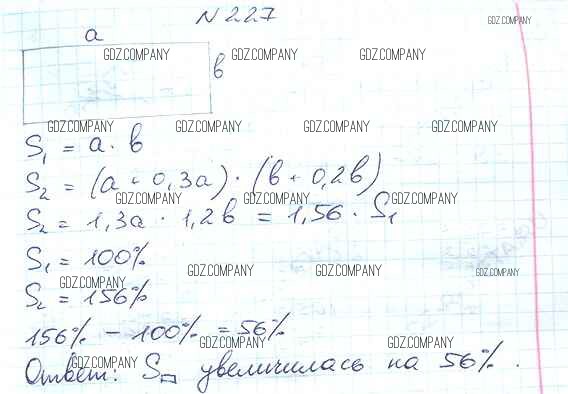 N 227
GDZ.COMPANY
a
GDZ.COMPANY GDZ.COMPANY GDZ.COMPANY GDZ.COMPANY
b
GDZ.COMPANY GDZ.COMPANY GDZ.COMPANY GDZ.COMPANY
S₁ = a · b
S₂ = (a + 0,3a) · (b + 0,2b)
GDZ.COMPANY GDZ.COMPANY GDZ.COMPANY
S₂ = 1,3a · 1,2b = 1,56 · S₁
S₁ = 100%
GDZ.COMPANY GDZ.COMPANY GDZ.COMPANY GDZ.COMPANY
S₂ = 156%
156% - 100% = 56%
GDZ.COMPANY GDZ.COMPANY
GDZ.COMPANY
Ответ: S▭ увеличилась на 56%.